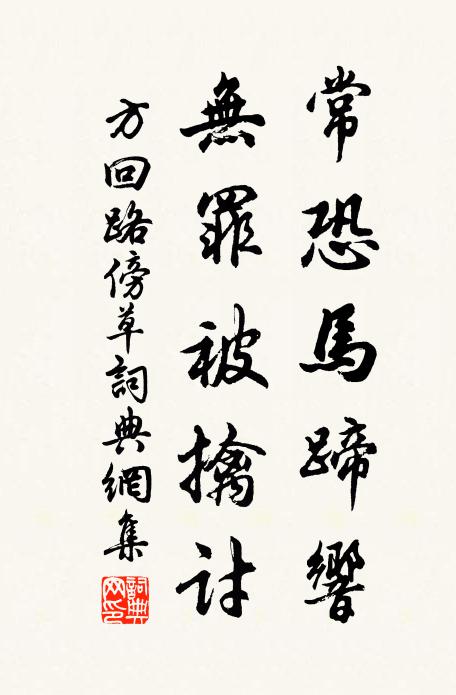 常恐馬蹄響
無罪被擒討
方回路傍草詞典網集
詞典网印